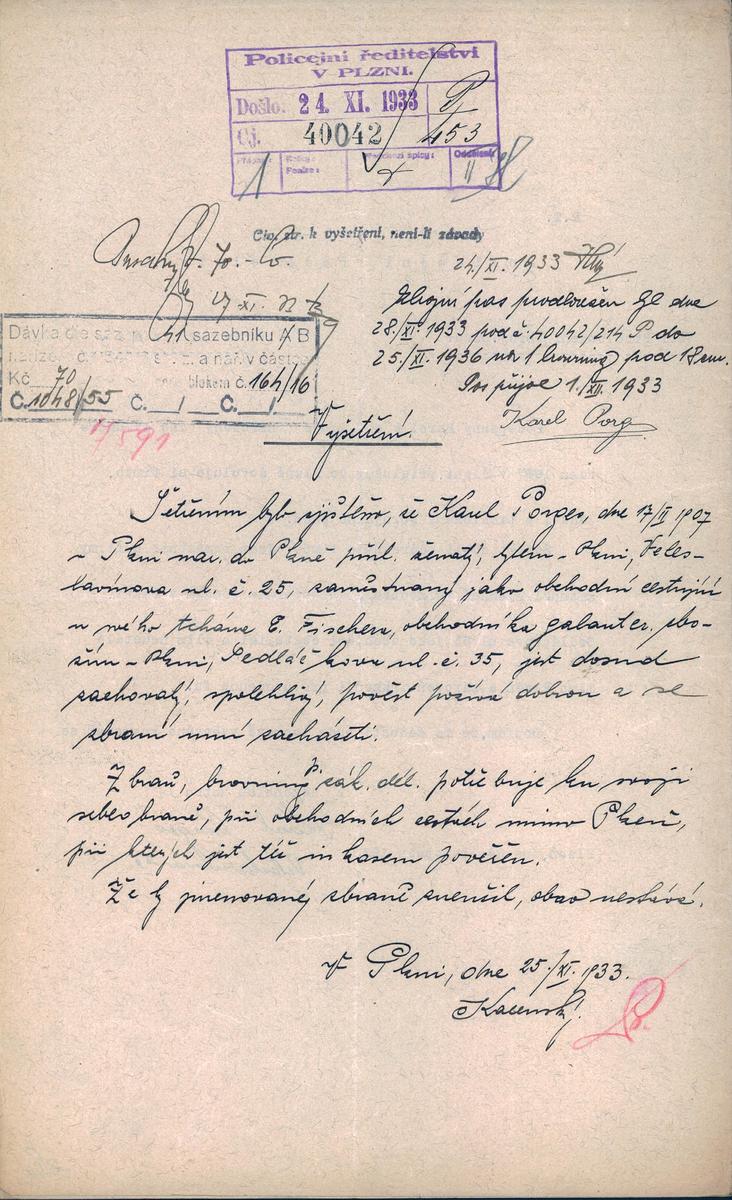 Policejní ředitelství
V PLZNI.
Došlo: 24. XI. 1933 P
Čj. 40042 453
Přílohy: Kolky: Předchozí spisy: Oddělení:
1 II
Civ. str. k vyšetření, není-li závady
70.-
24./XI. 1933
27 XI. 33
Zbrojní pas prodloužen zl dne
28./XI. 1933 pod č. 40042/214 P do
25./XI. 1936 na 1 browning pod 18 cm.
Pas přijal 1./XII. 1933
Karel Porges
Dávka dle saz. 41 sazebníku A B
Kč 70 blokem č. 164/16
Č. 1048/55 Č. / Č. /
17591
Vyšetření.
Šetřením bylo zjištěno, že Karel Porges, dne 17/II 1907
v Plzni nar. do Plzně přísl. ženatý, bytem v Plzni, Veles-
lavínova ul. č. 25, zaměstnaný jako obchodní cestující
u svého tchána E. Fischera, obchodníka galanter. zbo-
žím v Plzni, Sedláčkova ul. č. 35, jest dosud
zachovalý, spolehlivý, pověst požívá dobrou a se
zbraní umí zacházeti.
Zbraň, browning p. zák. dél. potřebuje ku svojí
sebeobraně, při obchodních cestách mimo Plzeň,
při kterých jest též inkasem pověřen.
Že by jmenovaný zbraně zneužil, obav nestává.
V Plzni, dne 25./XI. 1933.